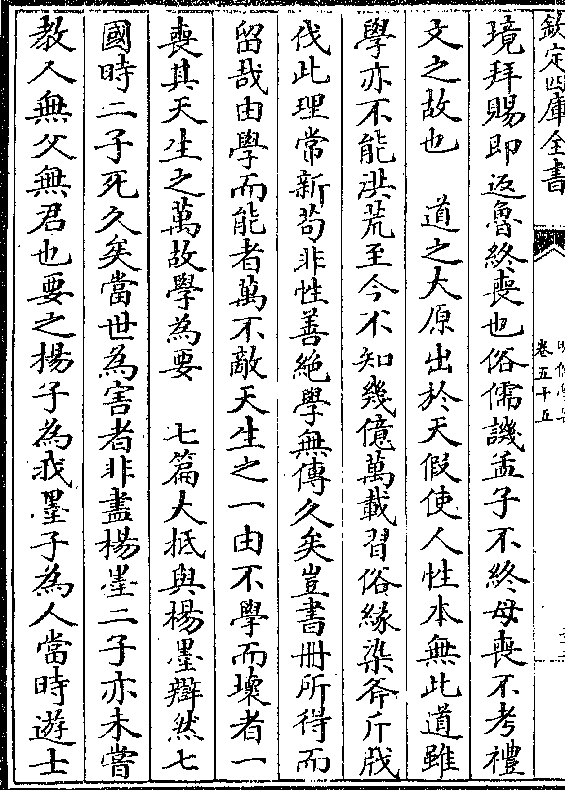 欽定四庫全書
卷五十五
境拜賜即返魯終喪也俗儒譏孟子不終母喪不考禮
文之故也　道之大原出於天假使人性本無此道雖
學亦不能洪荒至今不知幾億萬載習俗緣染斧斤戕
伐此理常新茍非性善絶學無傳久矣豈書冊所得而
留哉由學而能者萬不敵天生之一由不學而壞者一
喪其天生之萬故學為要　七篇大抵與楊墨辯然七
國時二子死久矣當世為害者非盡楊墨二子亦未嘗
教人無父無君也要之楊子為我墨子為人當時遊士